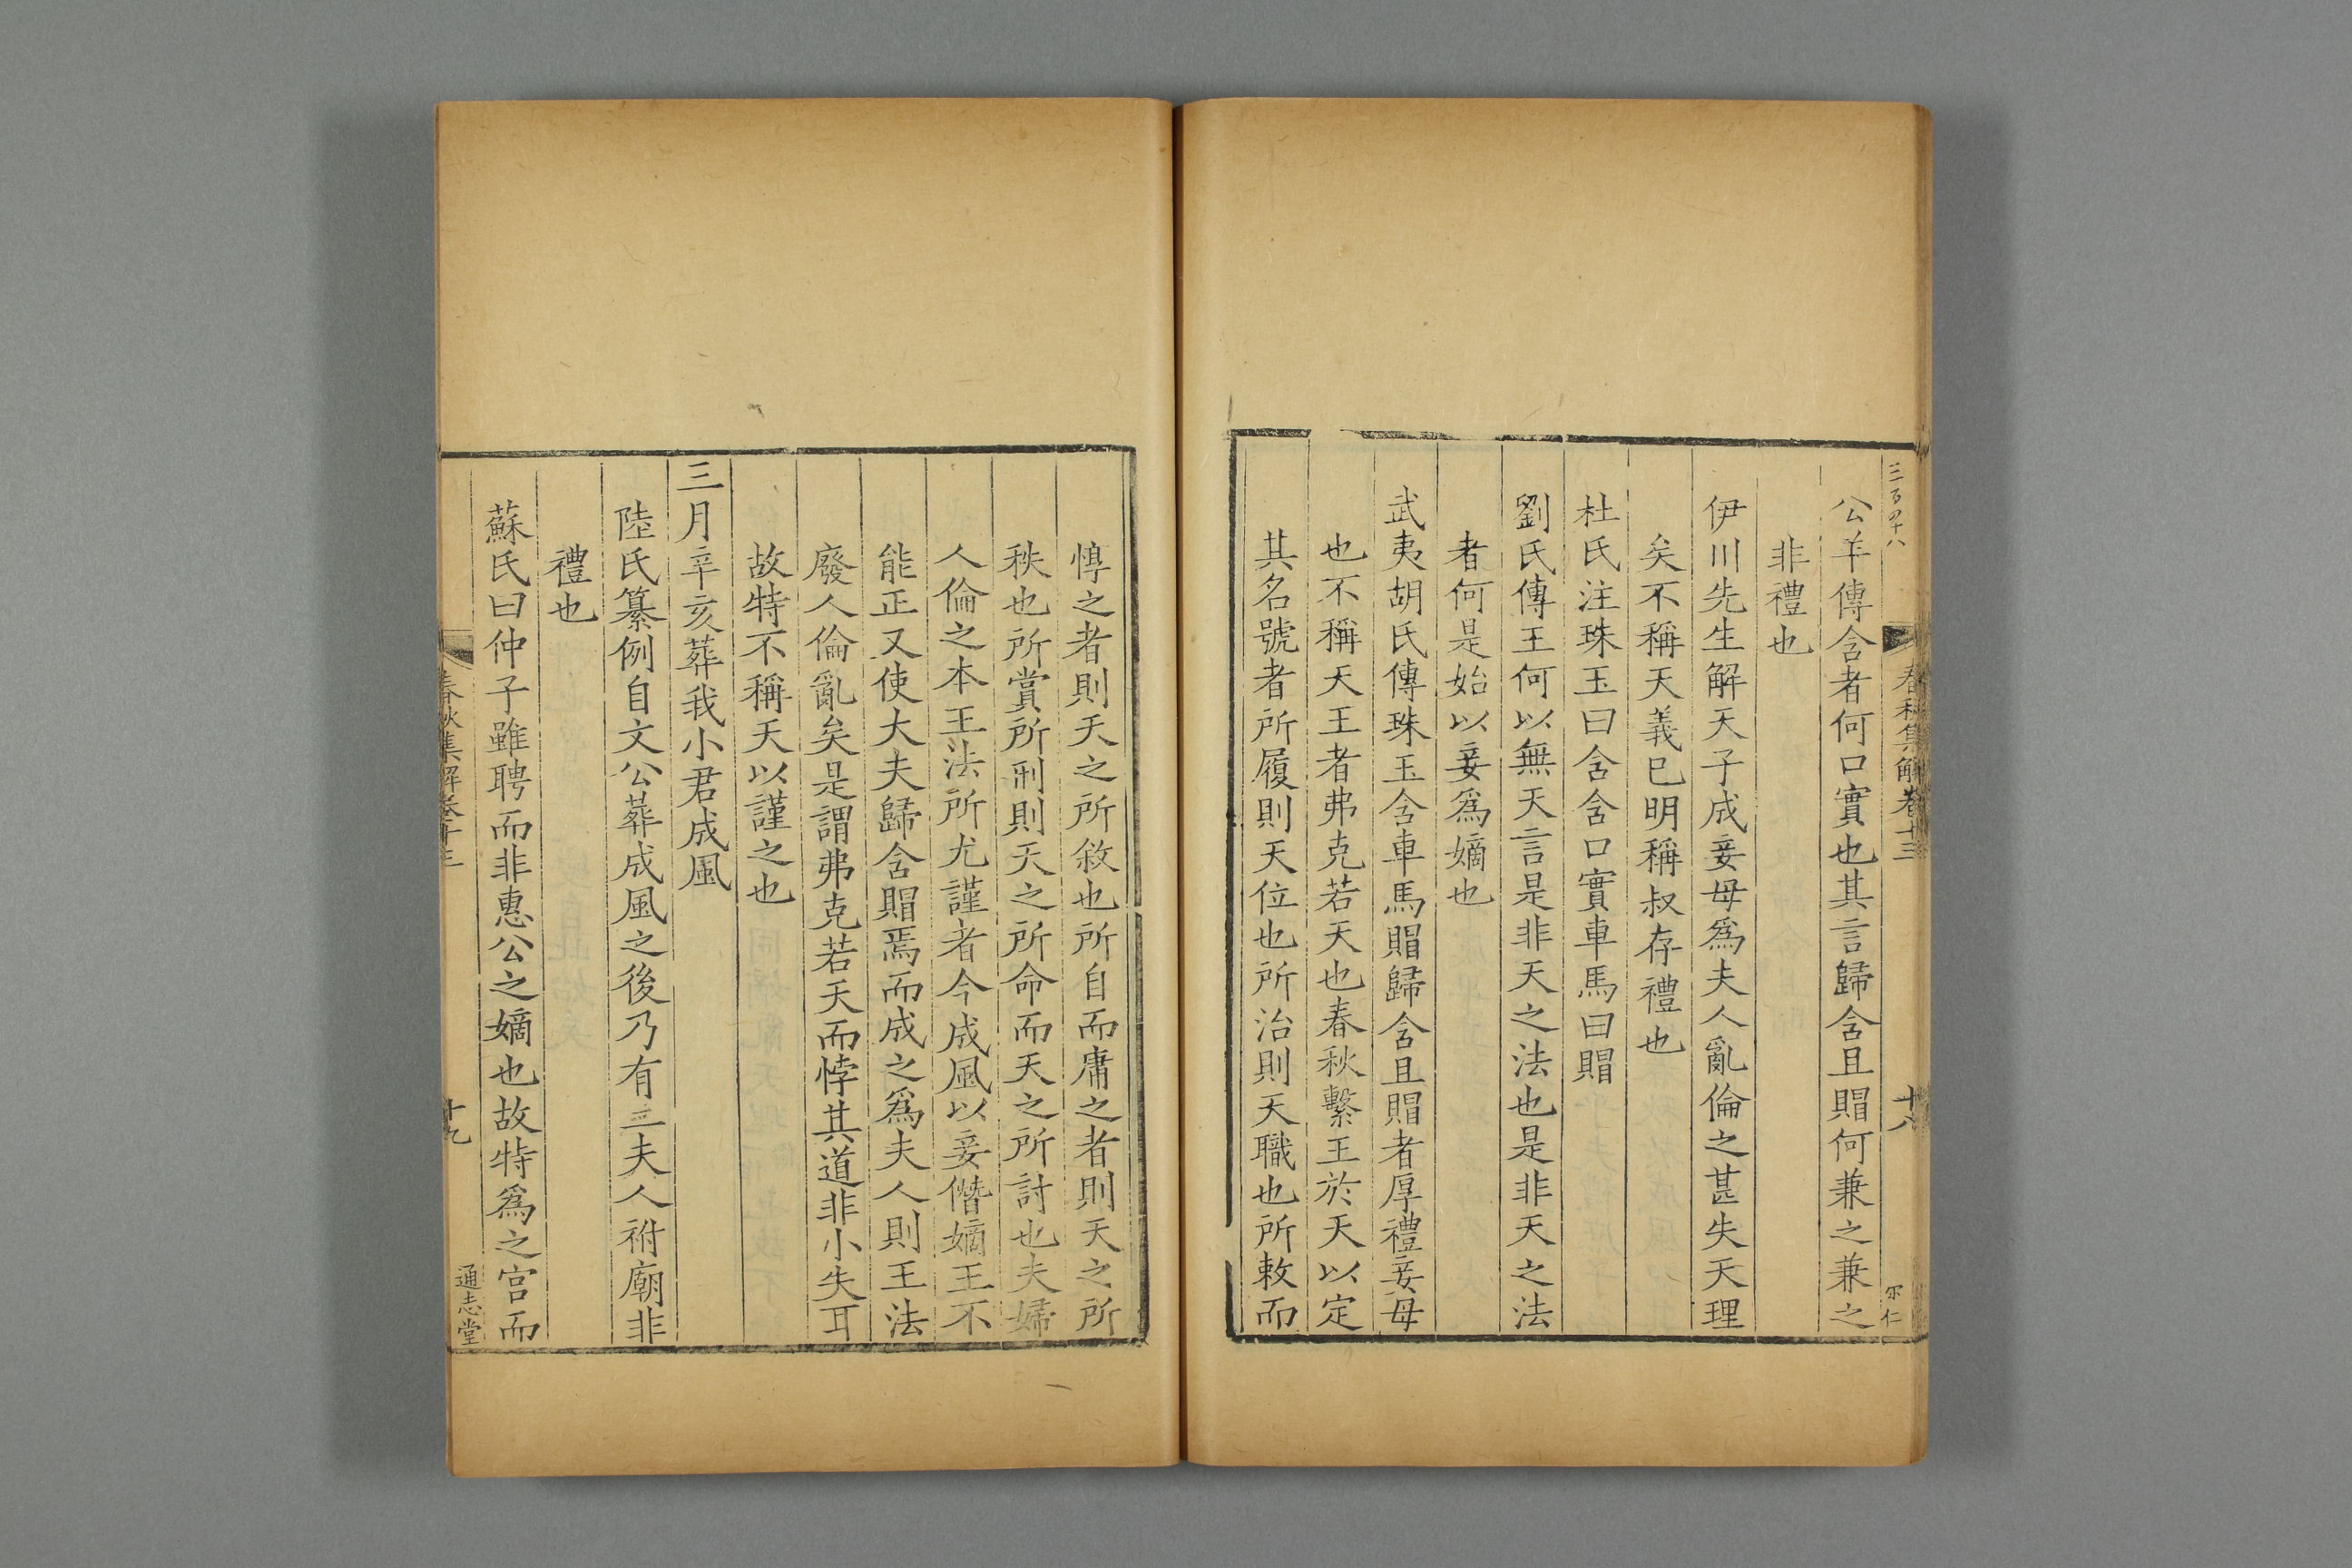 三百四十八
春秋集解卷十三
十八
尔仁
公羊傳含者何口實也其言歸含且賵何兼之兼之
非禮也
伊川先生解天子成妾母爲夫人亂倫之甚失天理
矣不稱天義已明稱叔存禮也
杜氏注珠玉曰含含口實車馬曰賵
劉氏傳王何以無天言是非天之法也是非天之法
者何是始以妾爲嫡也
武夷胡氏傳珠玉含車馬賵歸含且賵者厚禮妾母
也不稱天王者弗克若天也春秋繫王於天以定
其名號者所履則天位也所治則天職也所敕而
惇之者則天之所敘也所自而庸之者則天之所
秩也所賞所刑則天之所命而天之所討也夫婦
人倫之本王法所尤謹者今成風以妾僭嫡王不
能正又使大夫歸含賵焉而成之爲夫人則王法
廢人倫亂矣是謂弗克若天而悖其道非小失耳
故特不稱天以謹之也
三月辛亥葬我小君成風
陸氏纂例自文公葬成風之後乃有三夫人祔廟非
禮也
蘇氏曰仲子雖聘而非惠公之嫡也故特爲之宮而
春秋集解卷十三
十九
通志堂